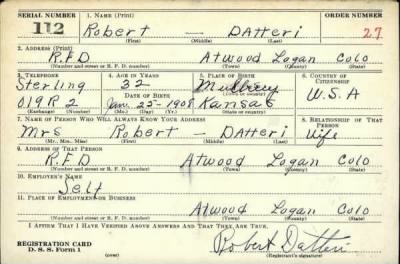 SERIAL NUMBER 1. NAME (Print) ORDER NUMBER
112 Robert — DAtteri 27
(First) (Middle) (Last)
2. ADDRESS (Print)
R.F.D Atwood Logan Colo
(Number and street or R. F. D. number) (Town) (County) (State)
3. TELEPHONE 4. AGE IN YEARS 5. PLACE OF BIRTH 6. COUNTRY OF CITIZENSHIP
Sterling 32 Mulberry
DATE OF BIRTH (Town or county)
019 R 2 Jan. 25 - 1908 Kansas U.S.A
(Exchange) (Number) (Mo.) (Day) (Yr.) (State or country)
7. NAME OF PERSON WHO WILL ALWAYS KNOW YOUR ADDRESS 8. RELATIONSHIP OF THAT PERSON
Mrs Robert — DAtteri Wife
(Mr., Mrs., Miss) (First) (Middle) (Last)
9. ADDRESS OF THAT PERSON
R.F.D Atwood Logan Colo
(Number and street or R. F. D. number) (Town) (County) (State)
10. EMPLOYER'S NAME
Self
11. PLACE OF EMPLOYMENT OR BUSINESS
Atwood Logan Colo
(Number and street or R. F. D. number) (Town) (County) (State)
I AFFIRM THAT I HAVE VERIFIED ABOVE ANSWERS AND THAT THEY ARE TRUE.
REGISTRATION CARD
D. S. S. Form 1
Robert Datteri
(Registrant's signature)